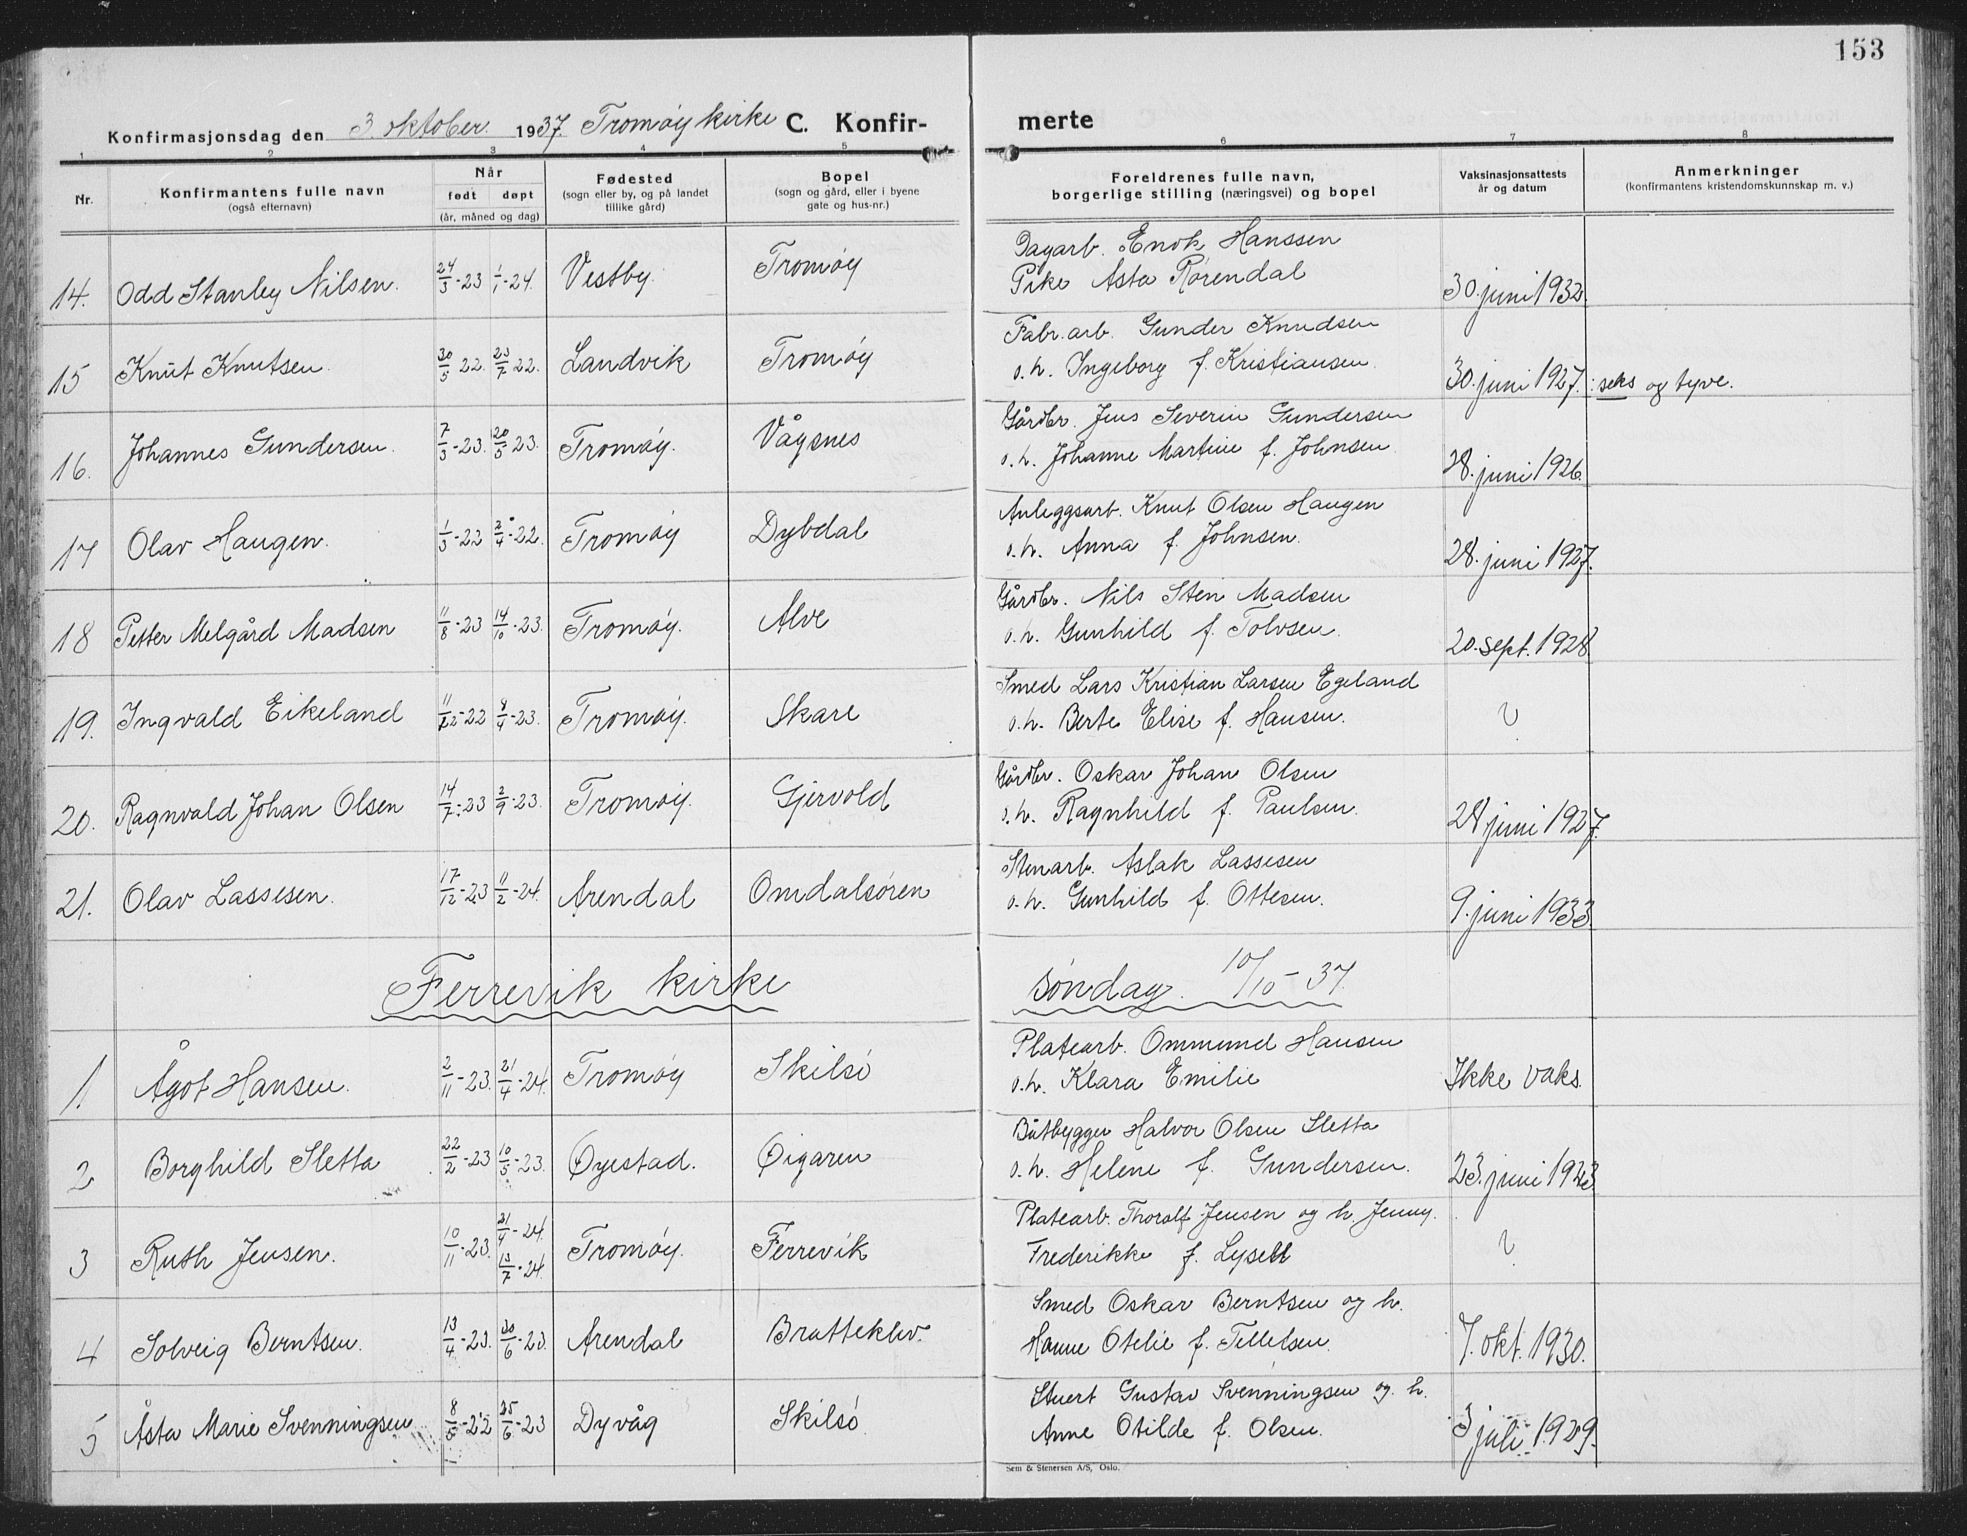 153
Konfirmasjonsdag den 3. oktober 1937. Tromøy kirke C. Konfir- merte
1 2 3 4 5 6 7 8
Nr. Konfirmantens fulle navn (også efternavn) Når født døpt (år, måned og dag) Fødested (sogn eller by, og på landet tillike gård) Bopel (sogn og gård, eller i byene gate og hus-nr.) Foreldrenes fulle navn, borgerlige stilling (næringsvei) og bopel Vaksinasjonsattests år og datum Anmerkninger (konfirmantens kristendomskunnskap m. v.)
Dagarb. Enok Hanssen
14. Odd Stanley Nilsen. 24/3-23 1/1-24. Vestby. Tromøy Pike Asta Rørendal 30. juni 1932.
Fabr. arb. Gunder Knudsen
15 Knut Knutsen. 30/5 22. 23/7 22. Landvik Tromøy o.h. Ingeborg f. Kristiansen. 30. juni 1927. : seks og tyve.
Gårdbr. Jens Severin Gundersen
16. Johannes Gundersen. 7/3-23. 20/5-23. Tromøy. Vågsnes o.h. Johanne Martine f. Johnsen. 28. juni 1926.
Anleggsarb. Knut Olsen Haugen
17 Olav Haugen. 1/3-22 2/4-22. Tromøy Dybdal o.h. Anna f. Johnsen. 28. juni 1927.
Gårdbr. Nils Sten Madsen
18 Petter Melgård Madsen 11/8-23 14/10-23. Tromøy. Alve o.h. Gunhild f. Tolvsen. 20. sept. 1928
Smed Lars Kristian Larsen Egeland
19. Ingvald Eikeland 11/12-22 8/4-23. Tromøy. Skare o.h. Berte Elise f. Hansen. ?
Gårdbr. Oskar Johan Olsen
20. Ragnvald Johan Olsen 14/7-23 2/9-23. Tromøy. Gjervold o.h. Ragnhild f. Paulsen. 28 juni 1927.
Stenarb. Aslak Lassesen
21. Olav Lassesen. 17/12-23 11/2-24. Arendal Omdalsøren o.h. Gunhild f. Ottesen. 9. juni 1933.
Færrevik kirke søndag. 10/10-37.
Platearb. Ommund Hansen
1. Ågot Hansen. 2/11-23. 21/4-24. Tromøy Skilsø o.h. Klara Emilie Ikke vaks.
Båtbygger Halvor Olsen Sletta
2 Borghild Sletta 22/2-23 10/5-23. Øyestad. Øigaren o.h. Helene f. Gundersen. 23. juni 1923
Platearb. Thoralf Jensen og h. Jenny.
3 Ruth Jensen. 10/11-23. 21/4-24. 13/7-24. Tromøy. Færrevik Frederikke f. Lysell ?
Smed Oskar Berntsen og h.
4 Solveig Berntsen. 13/4-23. 30/6-23. Arendal Brattekleiv. Hanne Otelie f. Tellefsen. 7. okt. 1930.
Stuert Gustav Svenningsen og h.
5 Åsta Marie Svenningsen 8/5-22 25/6-23 Dyvåg Skilsø. Anne Otilde f. Olsen. 3 juli 1929.
Sem & Stenersen A/S, Oslo.